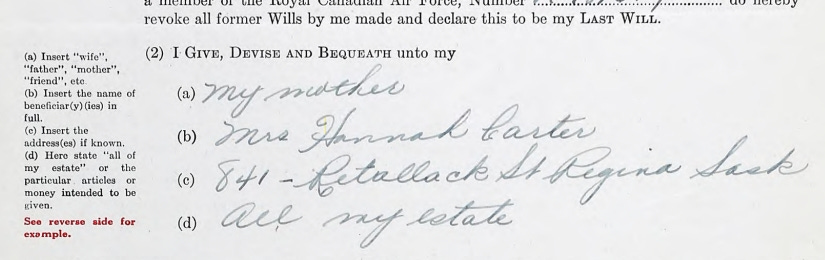 a member of the Royal Canadian Air Force, Number do hereby
revoke all former Wills by me made and declare this to be my LAST WILL.
(2) I GIVE, DEVISE AND BEQUEATH unto my
(a) Insert "wife",
"father", "mother",
"friend", etc
(b) Insert the name of
beneficiar(y)(ies) in
full.
(c) Insert the
address(es) if known.
(d) Here state "all of
my estate" or the
particular articles or
money intended to be
given.
See reverse side for
example.
(a) my mother
(b) Mrs Hannah Carter
(c) 841 - Retallack St Regina Sask
(d) All my estate